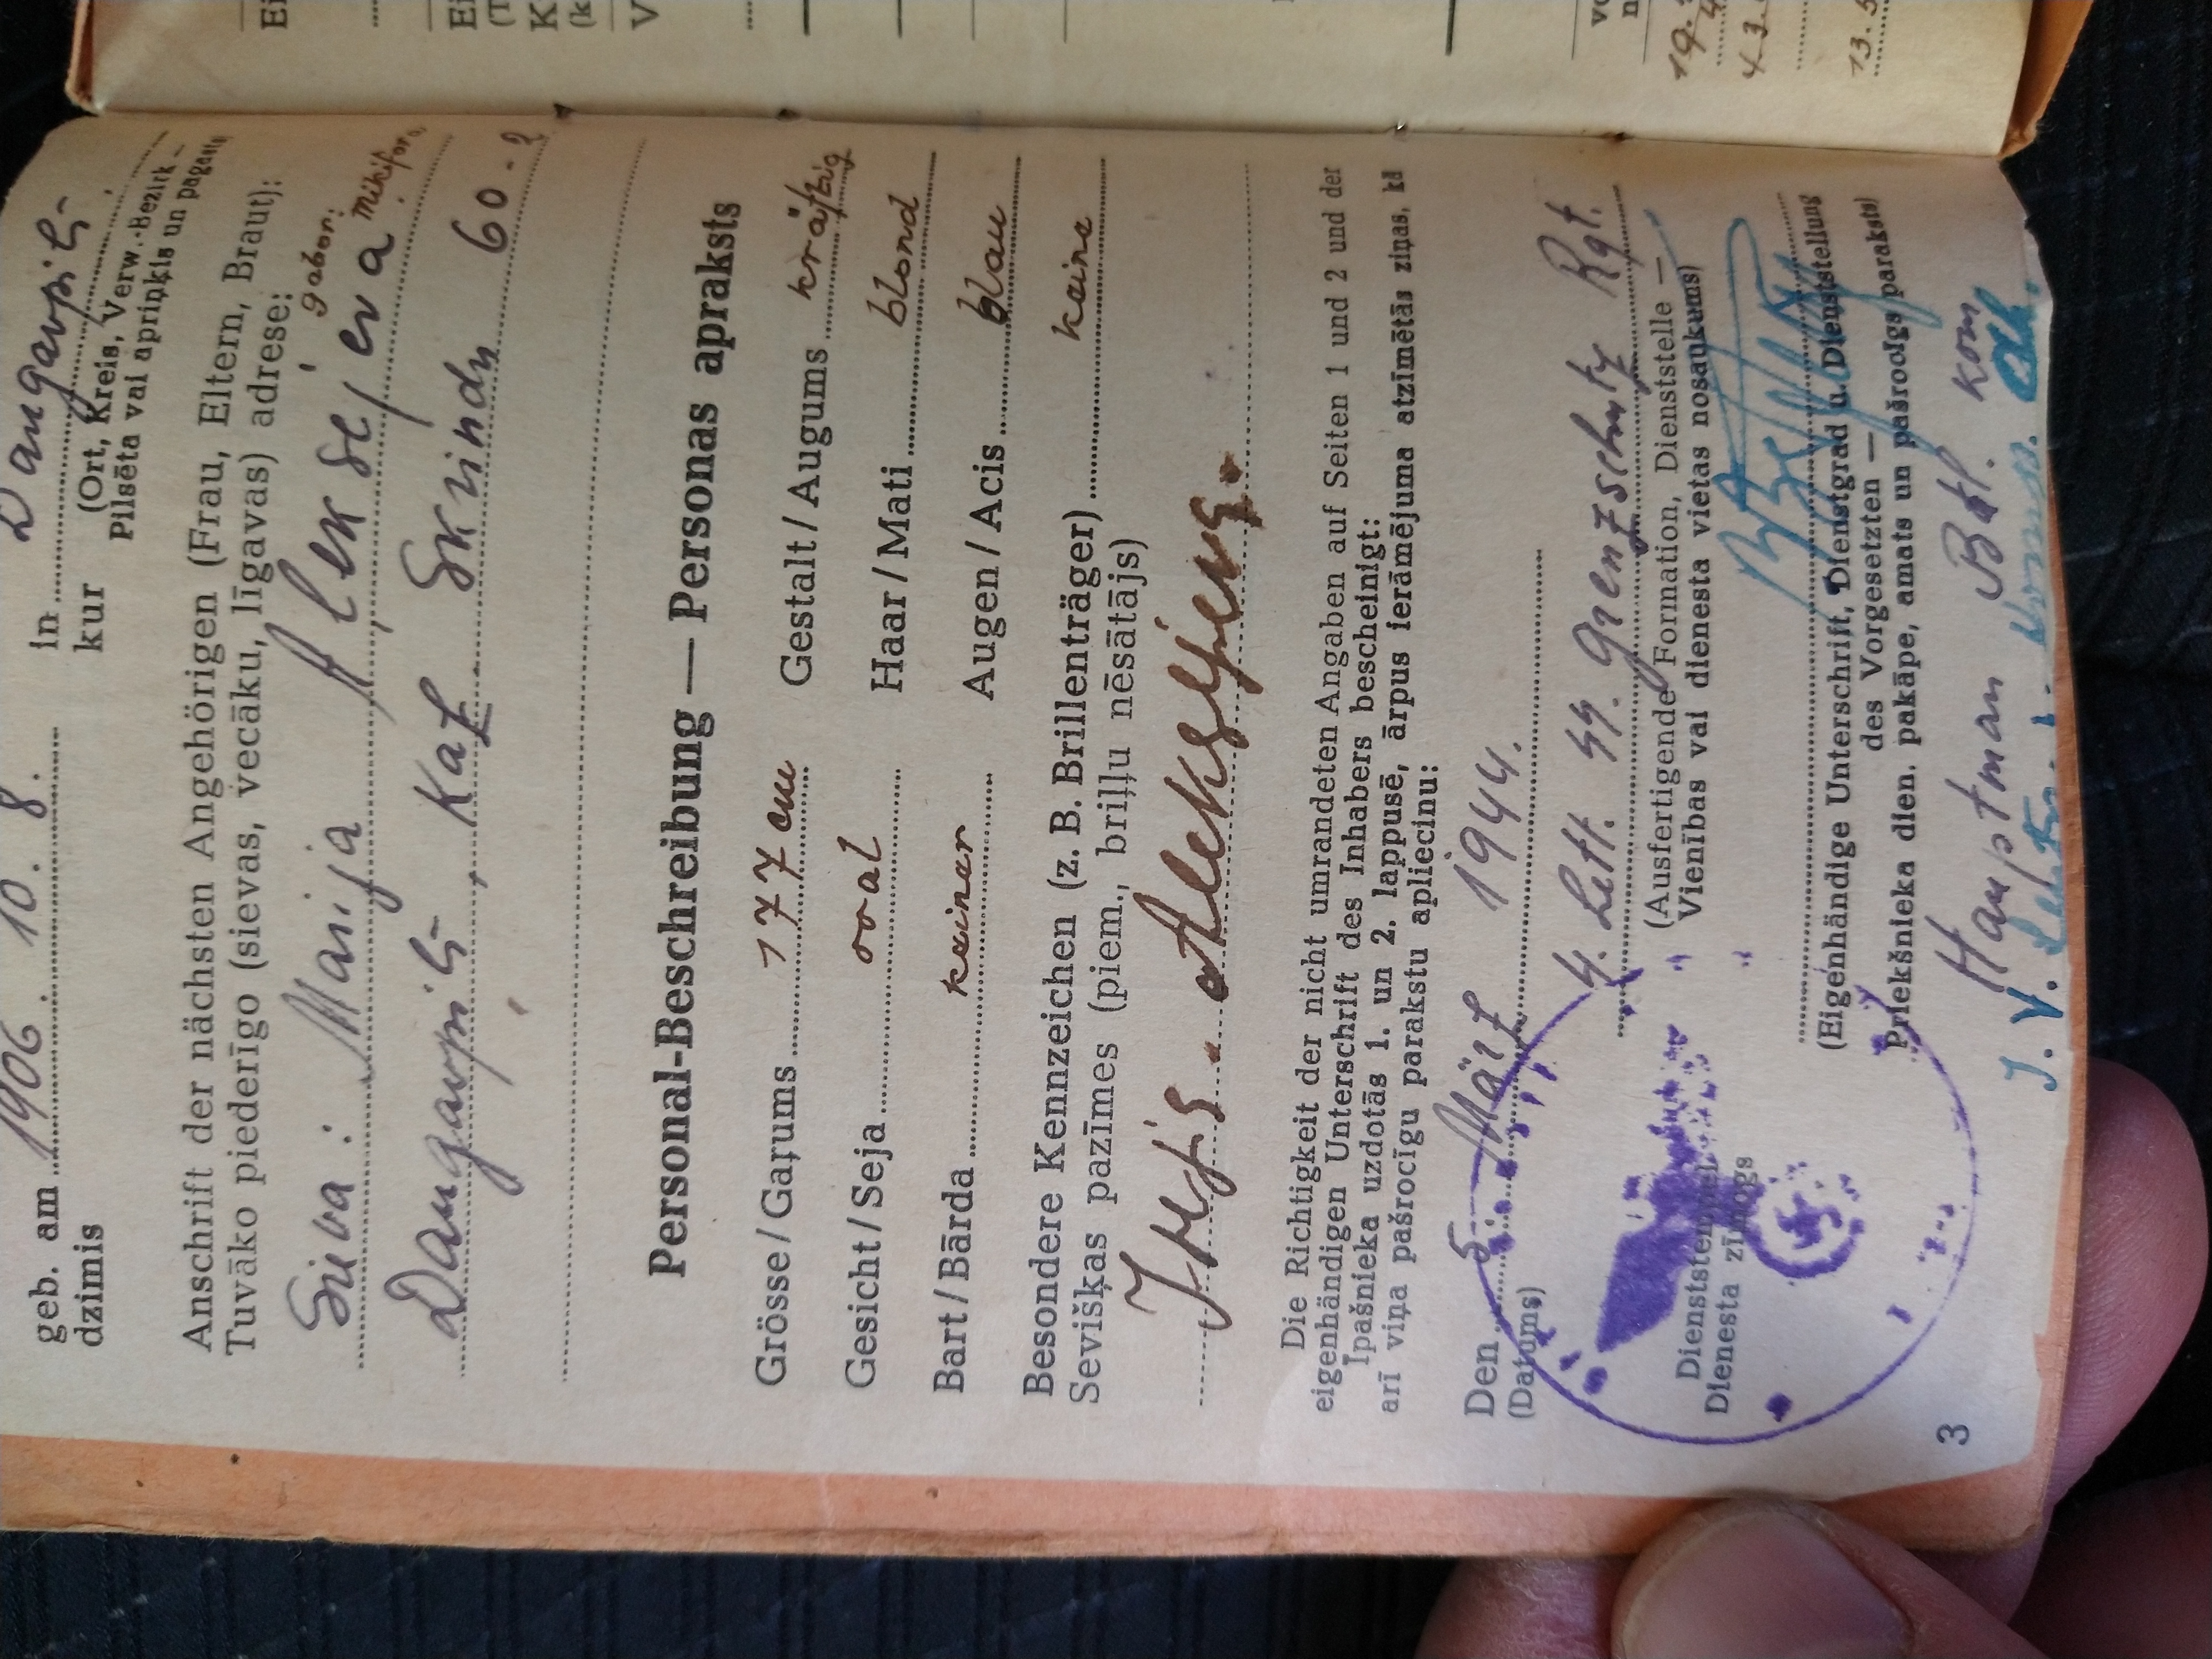 geb. am 1906. 10. 8. in Daugavpilī
dzimis kur (Ort, Kreis, Verw.-Bezirk —
Pilsēta vai apriņķis un pagasts
Anschrift der nächsten Angehörigen (Frau, Eltern, Braut):
Tuvāko piederīgo (sievas, vecāku, līgavas) adrese:
gebor:
Sieva: Marija Aleksejeva
Daugavpilī, Kaz. Skindu 60-2
Personal-Beschreibung — Personas apraksts
Grösse/Gaŗums 177 cm Gestalt/Augums kräftig
Gesicht/Seja oval Haar/Mati blond
Bart/Bārda keiner Augen/Acis blau
Besondere Kennzeichen (z. B. Brillenträger) keine
Sevišķas pazīmes (piem., briļļu nēsātājs)
Aleksejevs.
Die Richtigkeit der nicht umrandeten Angaben auf Seiten 1 und 2 und der
eigenhändigen Unterschrift des Inhabers bescheinigt:
Īpašnieka uzdotās 1. un 2. lappusē, ārpus ierāmējuma atzīmētās ziņas, kā
arī viņa pašrocīgu parakstu apliecinu:
Den 5. März 1944.
(Datums)
4. Lett. SS. Grenzschutz Rgt.
(Ausfertigende Formation, Dienststelle —
Vienības vai dienesta vietas nosaukums)
Dienststempel
Dienesta zīmogs
(Eigenhändige Unterschrift, Dienstgrad u. Dienststellung
des Vorgesetzten —
Priekšnieka dien. pakāpe, amats un pašrocīgs paraksts)
Hauptman Batl. kom
J. V.
3
Ei
Ei
(T
K
(k
V
vo
n
19.
4.3.
13.5